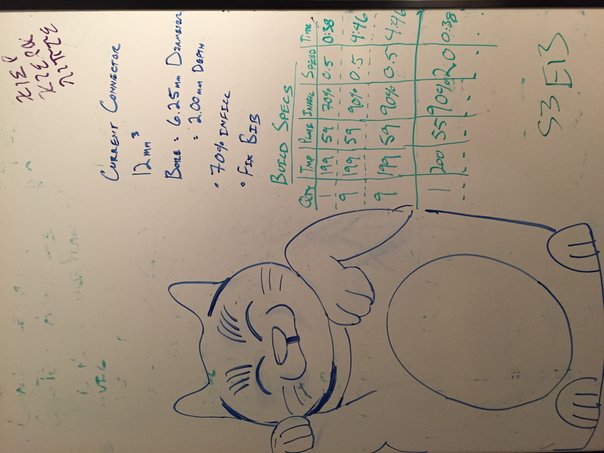 CURRENT CONNECTOR
12 mm³
BORE = 6.25mm DIAMETER
= 2.00mm DEPTH
• 70% INFILL
• FIX BIB
BUILD SPECS
QTY TMP PLATE INFILL SPEED TIME
1 199 59 70% 0.5 0:38
9 199 59 90% 0.5 4:46
9 199 59 90% 0.5 4:46
1 200 55 90% 2.0 0:38
S3 E13